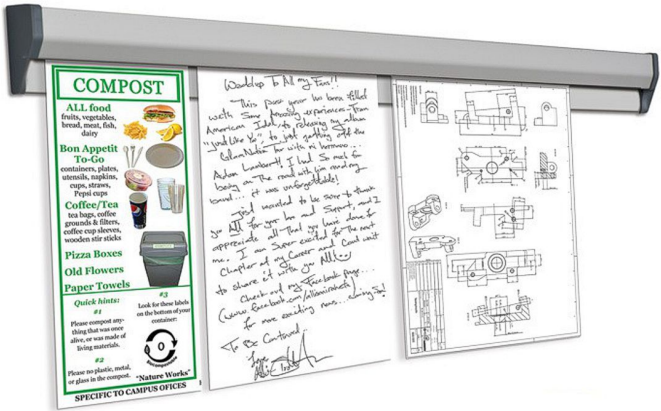 COMPOST
ALL food
fruits, vegetables,
bread, meat, fish,
dairy
Bon Appetit
To-Go
containers, plates,
utensils, napkins,
cups, straws,
Pepsi cups
Coffee/Tea
tea bags, coffee
grounds & filters,
coffee cup sleeves,
wooden stir sticks
Pizza Boxes
Old Flowers
Paper Towels
Quick hints:
#1
Please compost any-
thing that was once
alive, or was made of
living materials.
#2
Please no plastic, metal,
or glass in the compost.
#3
Look for these labels
on the bottom of your
container:
0
"Nature Works"
SPECIFIC TO CAMPUS OFICES
Waddup To All my Fans!!
This past year has been filled
with some Amazing experiences - From
American Idol, to releasing my album
"Just Like You" to just getting off the
GlamNation Tour with mi hermano...
Adam Lambert! I had So much fun
being on The road with him and my
band... it was unforgettable!
Just wanted to be sure to thank
you All for your love and Support, and I
appreciate all That you have done for
me. I am Super excited for the next
Chapter of my Career and Can't wait
to share it with you All!
Check out my Facebook page...
(www.facebook.com/allisoniraheta)
for more exciting news... coming Soon!
To Be Continued...
Love,